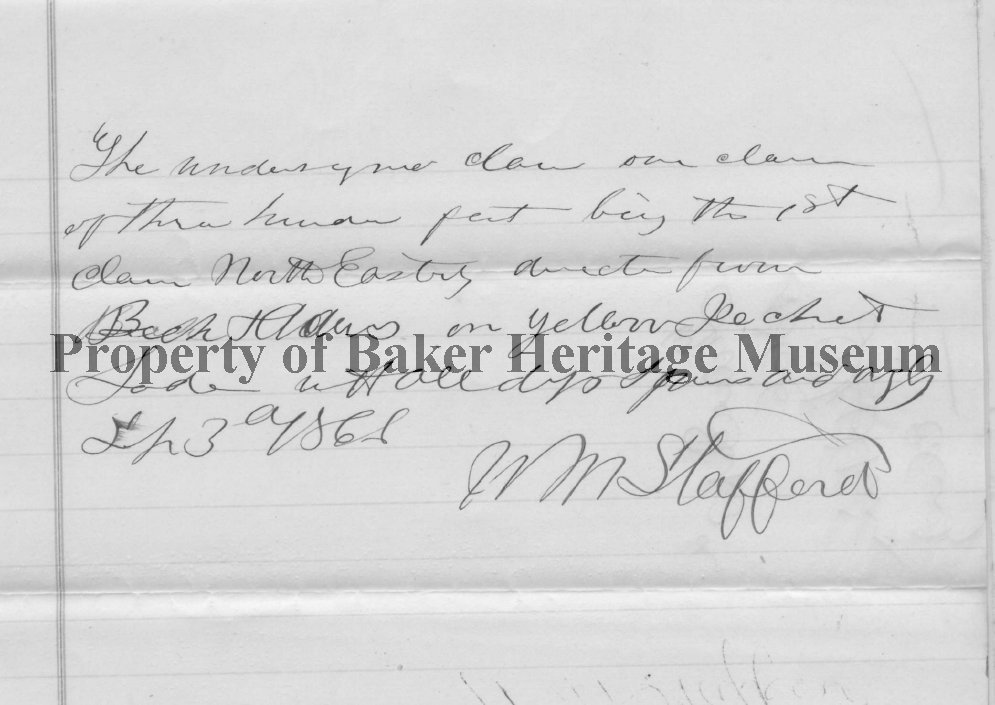 The undersigned claim one claim
of three hundred feet being the 1st
claim North Easterly direction from
Beck & Adams on Yellow Jacket
Property of Baker Heritage Museum
Lode with all dips Spurs and angles
Sep 3d 1868
W M Stafford